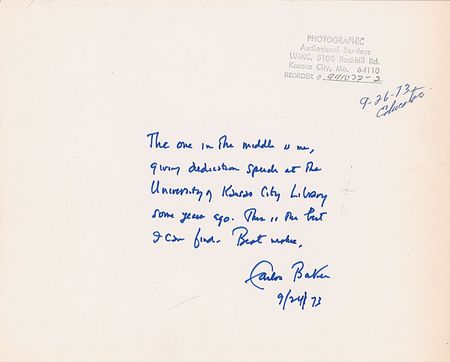 PHOTOGRAPHIC
Audiovisual Services
UMKC, 5100 Rockhill Rd.
Kansas City, Mo. 64110
REORDER #
9-26-73
The one in the middle is me,
giving dedication speech at the
University of Kansas City Library
some years ago. This is the best
I can find. Best wishes,
Carlos Baker
9/24/73